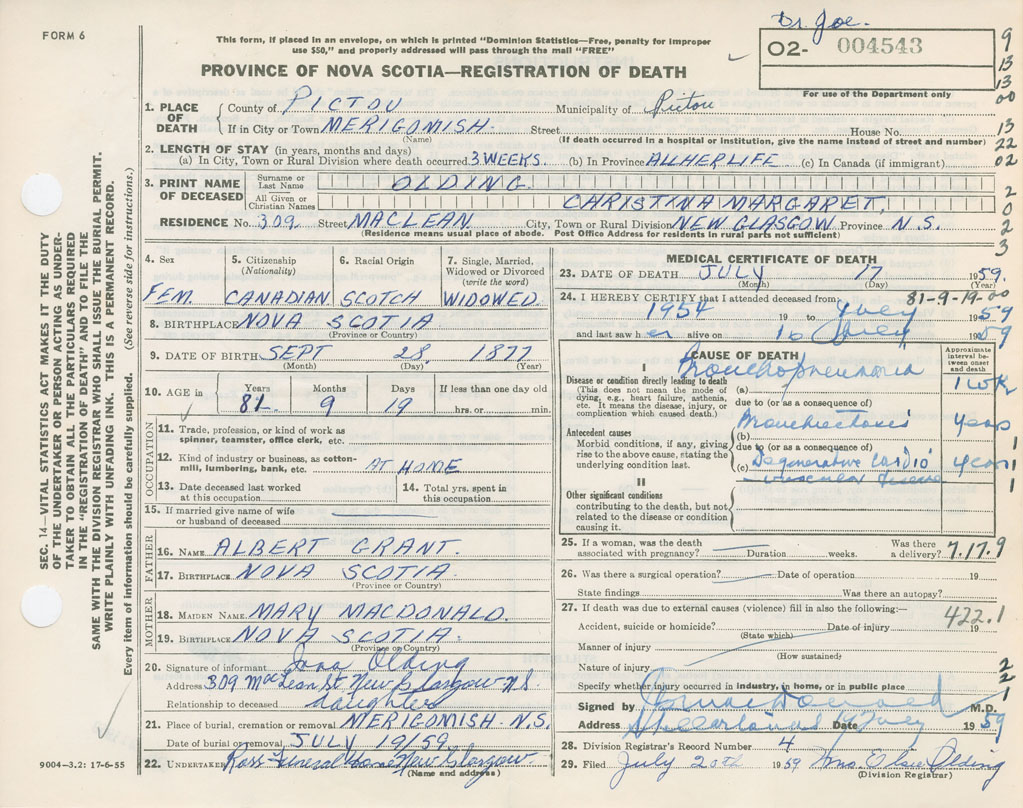 FORM 6
This form, if placed in an envelope, on which is printed "Dominion Statistics—Free, penalty for improper
use $50," and properly addressed will pass through the mail "FREE"
PROVINCE OF NOVA SCOTIA—REGISTRATION OF DEATH
Dr. Joe.
O2- 004543
For use of the Department only
9
13
13
00
13
22
02
2
0
2
3
1. PLACE OF DEATH County of PICTOU Municipality of Pictou
If in City or Town MERIGOMISH. Street House No.
(Name) (If death occurred in a hospital or institution, give the name instead of street and number)
2. LENGTH OF STAY (in years, months and days)
(a) In City, Town or Rural Division where death occurred 3 WEEKS. (b) In Province ALL HER LIFE (c) In Canada (if immigrant)
3. PRINT NAME OF DECEASED Surname or Last Name OLDING.
All Given or Christian Names CHRISTINA MARGARET,
RESIDENCE No. 309 Street MACLEAN City, Town or Rural Division NEW GLASGOW Province N.S.
(Residence means usual place of abode. Post Office Address for residents in rural parts not sufficient)
4. Sex FEM.
5. Citizenship (Nationality) CANADIAN
6. Racial Origin SCOTCH
7. Single, Married, Widowed or Divorced (write the word) WIDOWED
8. BIRTHPLACE NOVA SCOTIA
(Province or Country)
9. DATE OF BIRTH SEPT 28 1877
(Month) (Day) (Year)
10. AGE in Years Months Days If less than one day old
81 9 19 hrs. or min.
OCCUPATION
11. Trade, profession, or kind of work as
spinner, teamster, office clerk, etc.
12. Kind of industry or business, as cotton-
mill, lumbering, bank, etc. AT HOME
13. Date deceased last worked
at this occupation
14. Total yrs. spent in
this occupation
15. If married give name of wife
or husband of deceased
FATHER
16. NAME ALBERT GRANT.
17. BIRTHPLACE NOVA SCOTIA
(Province or Country)
MOTHER
18. MAIDEN NAME MARY MACDONALD.
19. BIRTHPLACE NOVA SCOTIA.
(Province or Country)
20. Signature of informant Olding
Address 309 MacLean St New Glasgow N.S.
Relationship to deceased daughter
21. Place of burial, cremation or removal MERIGOMISH. N.S.
Date of burial or removal JULY 19/59.
22. UNDERTAKER Ross Funeral Home New Glasgow
(Name and address)
9004—3.2: 17-6-55
MEDICAL CERTIFICATE OF DEATH
23. DATE OF DEATH JULY 17 1959.
(Month) (Day) (Year)
24. I HEREBY CERTIFY that I attended deceased from: 81-9-19-00
1954 19 to July 1959
and last saw h er alive on 16 July 1959
CAUSE OF DEATH
Approximate interval between onset and death
I
Disease or condition directly leading to death
(This does not mean the mode of
dying, e.g., heart failure, asthenia,
etc. It means the disease, injury, or
complication which caused death.)
(a) Bronchopneumonia 1 wk
due to (or as a consequence of)
Antecedent causes
Morbid conditions, if any, giving
rise to the above cause, stating the
underlying condition last.
(b) Bronchiectasis years
due to (or as a consequence of)
(c) Degenerative cardio
vascular disease years
1
1
1
II
Other significant conditions
contributing to the death, but not
related to the disease or condition
causing it.
25. If a woman, was the death
associated with pregnancy? Duration weeks. Was there
a delivery? 7.17.9
26. Was there a surgical operation? Date of operation 19
State findings Was there an autopsy?
27. If death was due to external causes (violence) fill in also the following:—
422.1
Accident, suicide or homicide? Date of injury 19
(State which)
Manner of injury
(How sustained)
Nature of injury
Specify whether injury occurred in industry, in home, or in public place
2
2
1
Signed by M.D.
Address Date July 1959
28. Division Registrar's Record Number 4
29. Filed July 20th 1959 Mrs. Elsie Olding
(Division Registrar)
SEC. 14—VITAL STATISTICS ACT MAKES IT THE DUTY
OF THE UNDERTAKER OR PERSON ACTING AS UNDER-
TAKER TO OBTAIN ALL THE PARTICULARS REQUIRED
IN THE "REGISTRATION OF DEATH" AND TO FILE THE
SAME WITH THE DIVISION REGISTRAR WHO SHALL ISSUE THE BURIAL PERMIT.
WRITE PLAINLY WITH UNFADING INK. THIS IS A PERMANENT RECORD.
Every item of information should be carefully supplied. (See reverse side for instructions.)